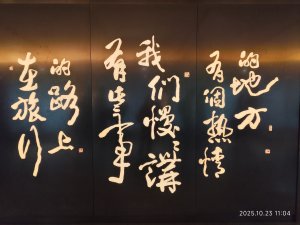 在旅行
的路上
有些事
我们慢〻講
有個熱情
的地方
2025.10.23 11:04